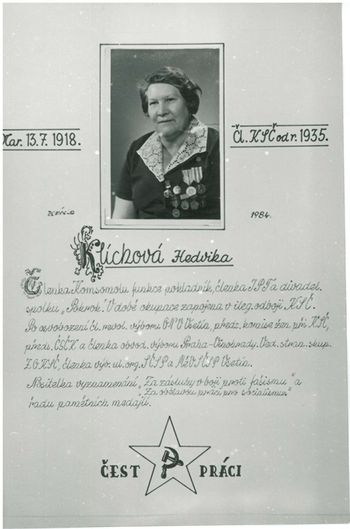 Nar. 13.7.1918.
Čl. KSČ od r. 1935.
1984.
Klichová Hedvika
Členka Komsomolu funkce pokladník, členka FPT a divadel.
spolku „Pokrok". V době okupace zapojena v ileg. odboji KSČ.
Po osvobození čl. revol. výboru ONV Vsetín, předs. komise žen při KSČ,
předs. ČSČK a členka obvod. výboru Praha-Vinohrady. Ved. stran. skup.
ZO KSČ, členka výb. ul. org. SČSP a MěV SČSP Vsetín.
Nositelka vyznamenání „Za zásluhy v boji proti fašismu" a
„Za obětavou práci pro socialismus"
řadu pamětních medailí.
ČEST PRÁCI